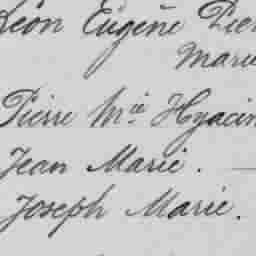 Léon Eugène Pier
Marie
Pierre Mie Hyacin
Jean Marie.
Joseph Marie.